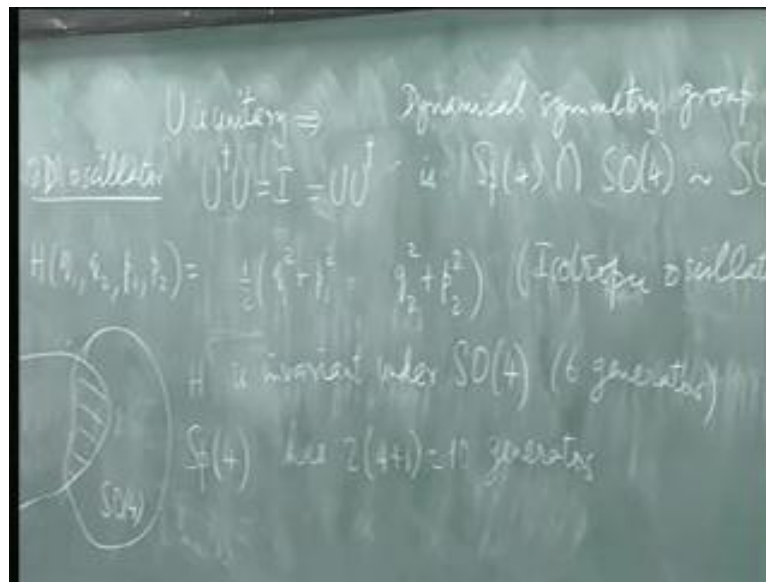 U is unitary ⇒ Dynamical symmetry group
2D oscillator U†U = I = UU† is Sp(4) ∩ SO(4) ~ S
H(q₁, q₂, p₁, p₂) = ½(q₁² + p₁² q₂² + p₂²) (Isotropic oscillat
H is invariant under SO(4) (6 generators)
Sp(4) has 2(4+1) = 10 generators
SO(4)